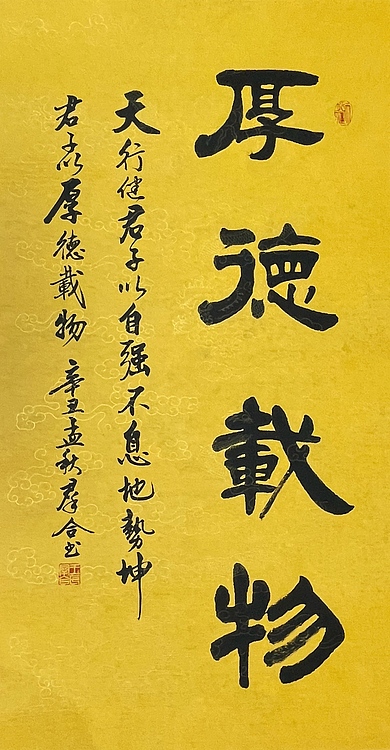 厚德載物
天行健君子以自强不息地勢坤
君子以厚德載物 辛丑孟秋群合书